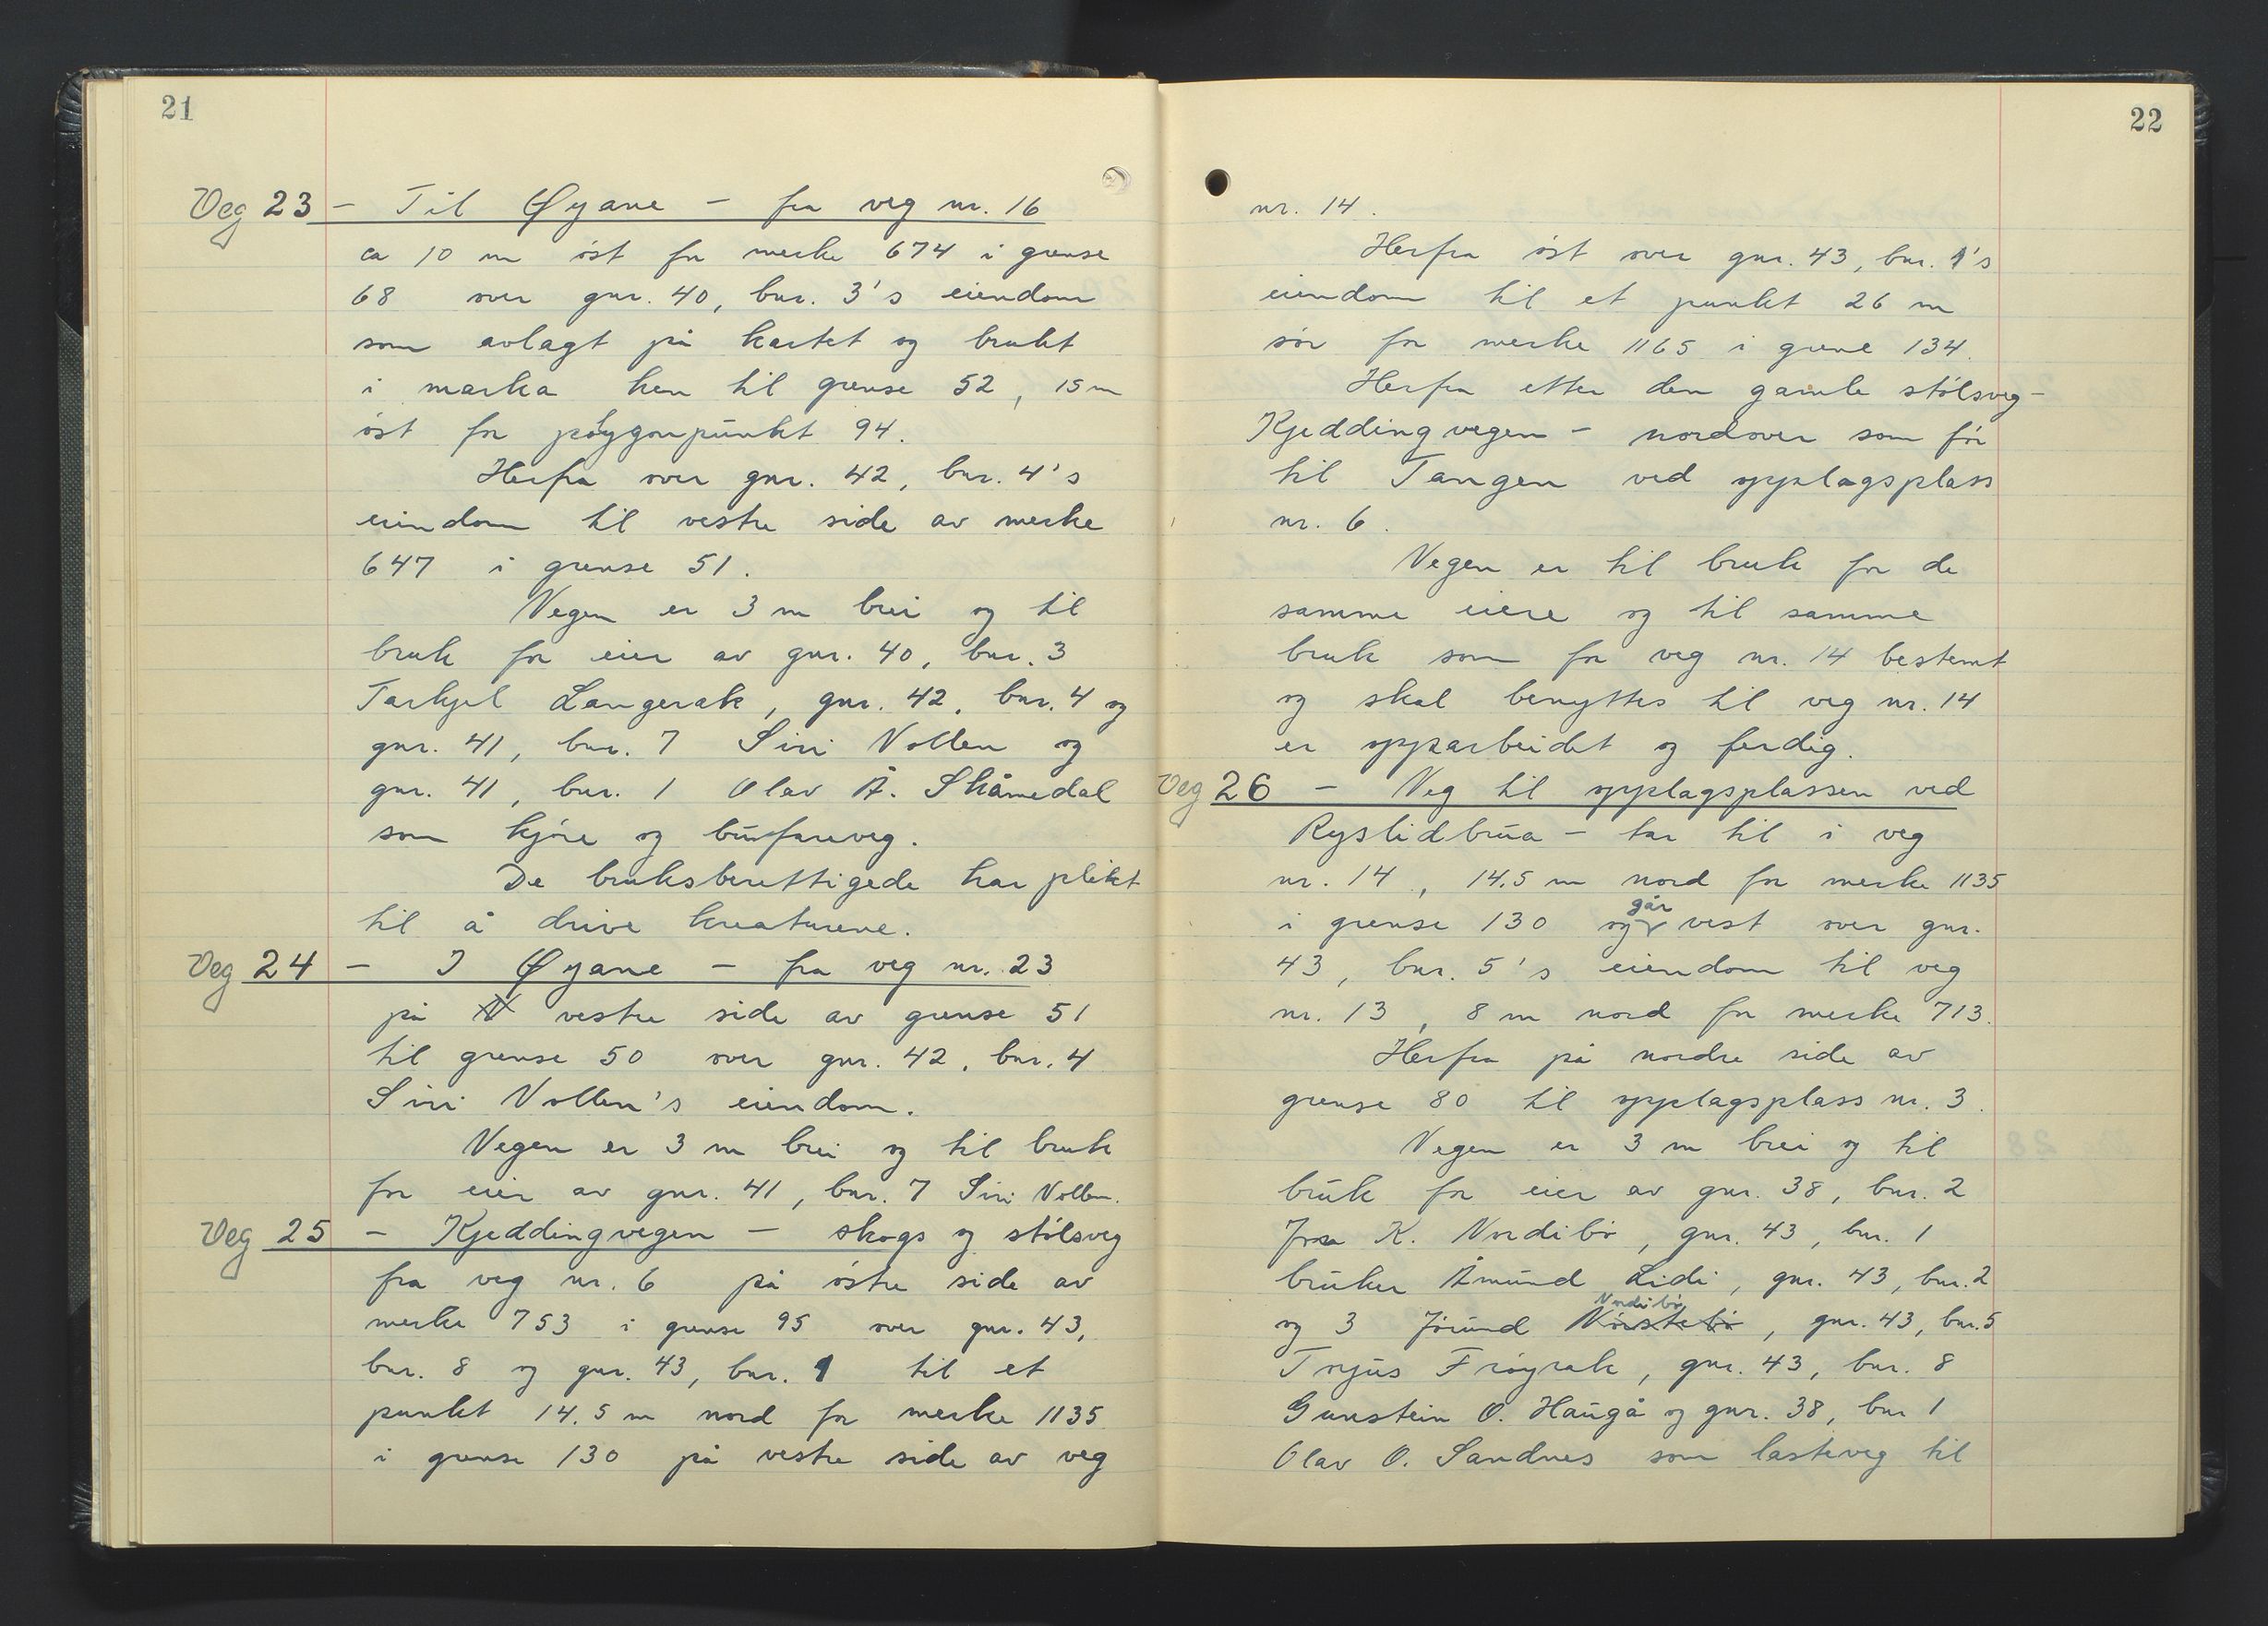 21
Veg 23 – Til Øyane – fra veg nr. 16
ca 10 m øst for merke 674 i grense
68 over gnr. 40, bnr. 3's eiendom
som avlagt på kartet og brukt
i marka hen til grense 52, 15 m
øst for polygonpunkt 94.
Herfra over gnr. 42, bnr. 4's
eiendom til vestre side av merke
647 i grense 51.
Vegen er 3 m brei og til
bruk for eier av gnr. 40, bnr. 3
Tarkjel Langerak, gnr. 42, bnr. 4 og
gnr. 41, bnr. 7 Siri Vollen og
gnr. 41, bnr. 1 Olav Å. Skåmedal
som kjøre og bufareveg.
De bruksberettigede har plikt
til å drive kreaturene.
Veg 24 – I Øyane – fra veg nr. 23
på vestre side av grense 51
til grense 50 over gnr. 42, bnr. 4
Siri Vollen's eiendom.
Vegen er 3 m brei og til bruk
for eier av gnr. 41, bnr. 7 Siri Vollen.
Veg 25 – Kjeddingvegen – skogs og stølsveg
fra veg nr. 6 på østre side av
merke 753 i grense 95 over gnr. 43,
bnr. 8 og gnr. 43, bnr. 1 til et
punkt 14.5 m nord for merke 1135
i grense 130 på vestre side av veg
22
nr. 14.
Herfra øst over gnr. 43, bnr. 1's
eiendom til et punkt 26 m
sør for merke 1165 i grense 134.
Herfra etter den gamle stølsveg –
Kjeddingvegen – nordover som før
til Tangen ved opplagsplass
nr. 6.
Vegen er til bruk for de
samme eiere og til samme
bruk som for veg nr. 14 bestemt
og skal benyttes til veg nr. 14
er opparbeidet og ferdig.
Veg 26 – Veg til opplagsplassen ved
Ryslidbrua – tar til i veg
nr. 14, 14,5 m nord for merke 1135
i grense 130 og går vest over gnr.
43, bnr. 5's eiendom til veg
nr. 13, 8 m nord for merke 713.
Herfra på nordre side av
grense 80 til opplagsplass nr. 3.
Vegen er 3 m brei og til
bruk for eier av gnr. 38, bnr. 2
K. Nordibø, gnr. 43, bnr. 1
bruker Åmund Lidi, gnr. 43, bnr. 2
og 3 Jørund Nørstebø Nordibø, gnr. 43, bnr. 5
Torjus Frøyrak, gnr. 43, bnr. 8
Gunstein O. Haugå og gnr. 38, bnr 1
Olav O. Sandnes som lasteveg til